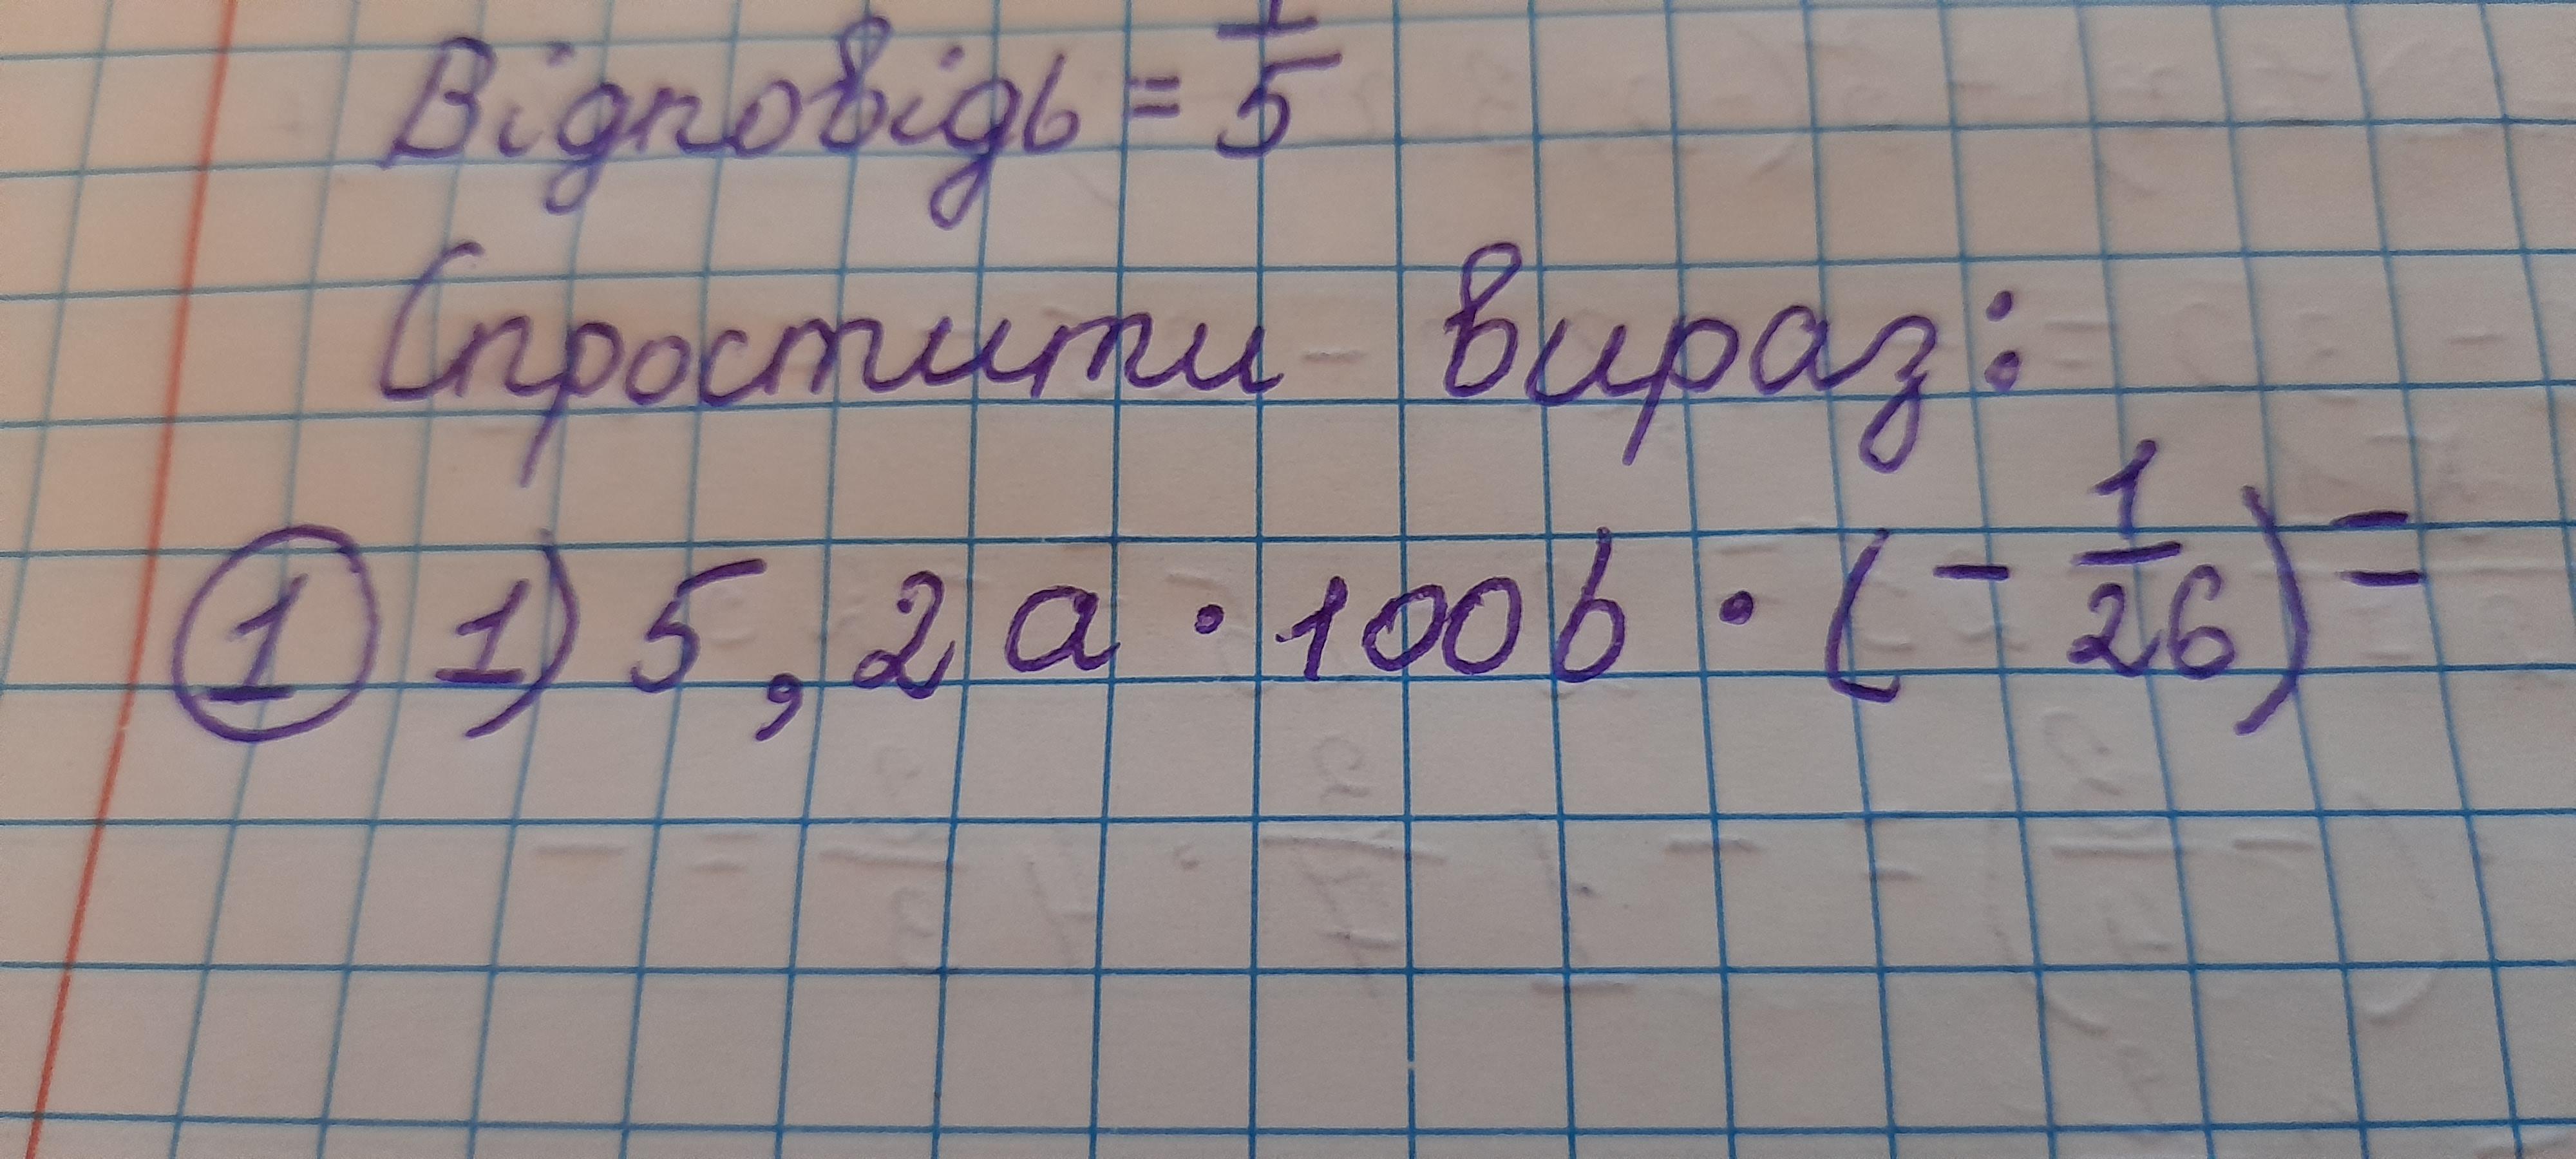 Відповідь = 1/5
Спростити вираз:
1 1) 5,2a · 100b · (- 1/26) =